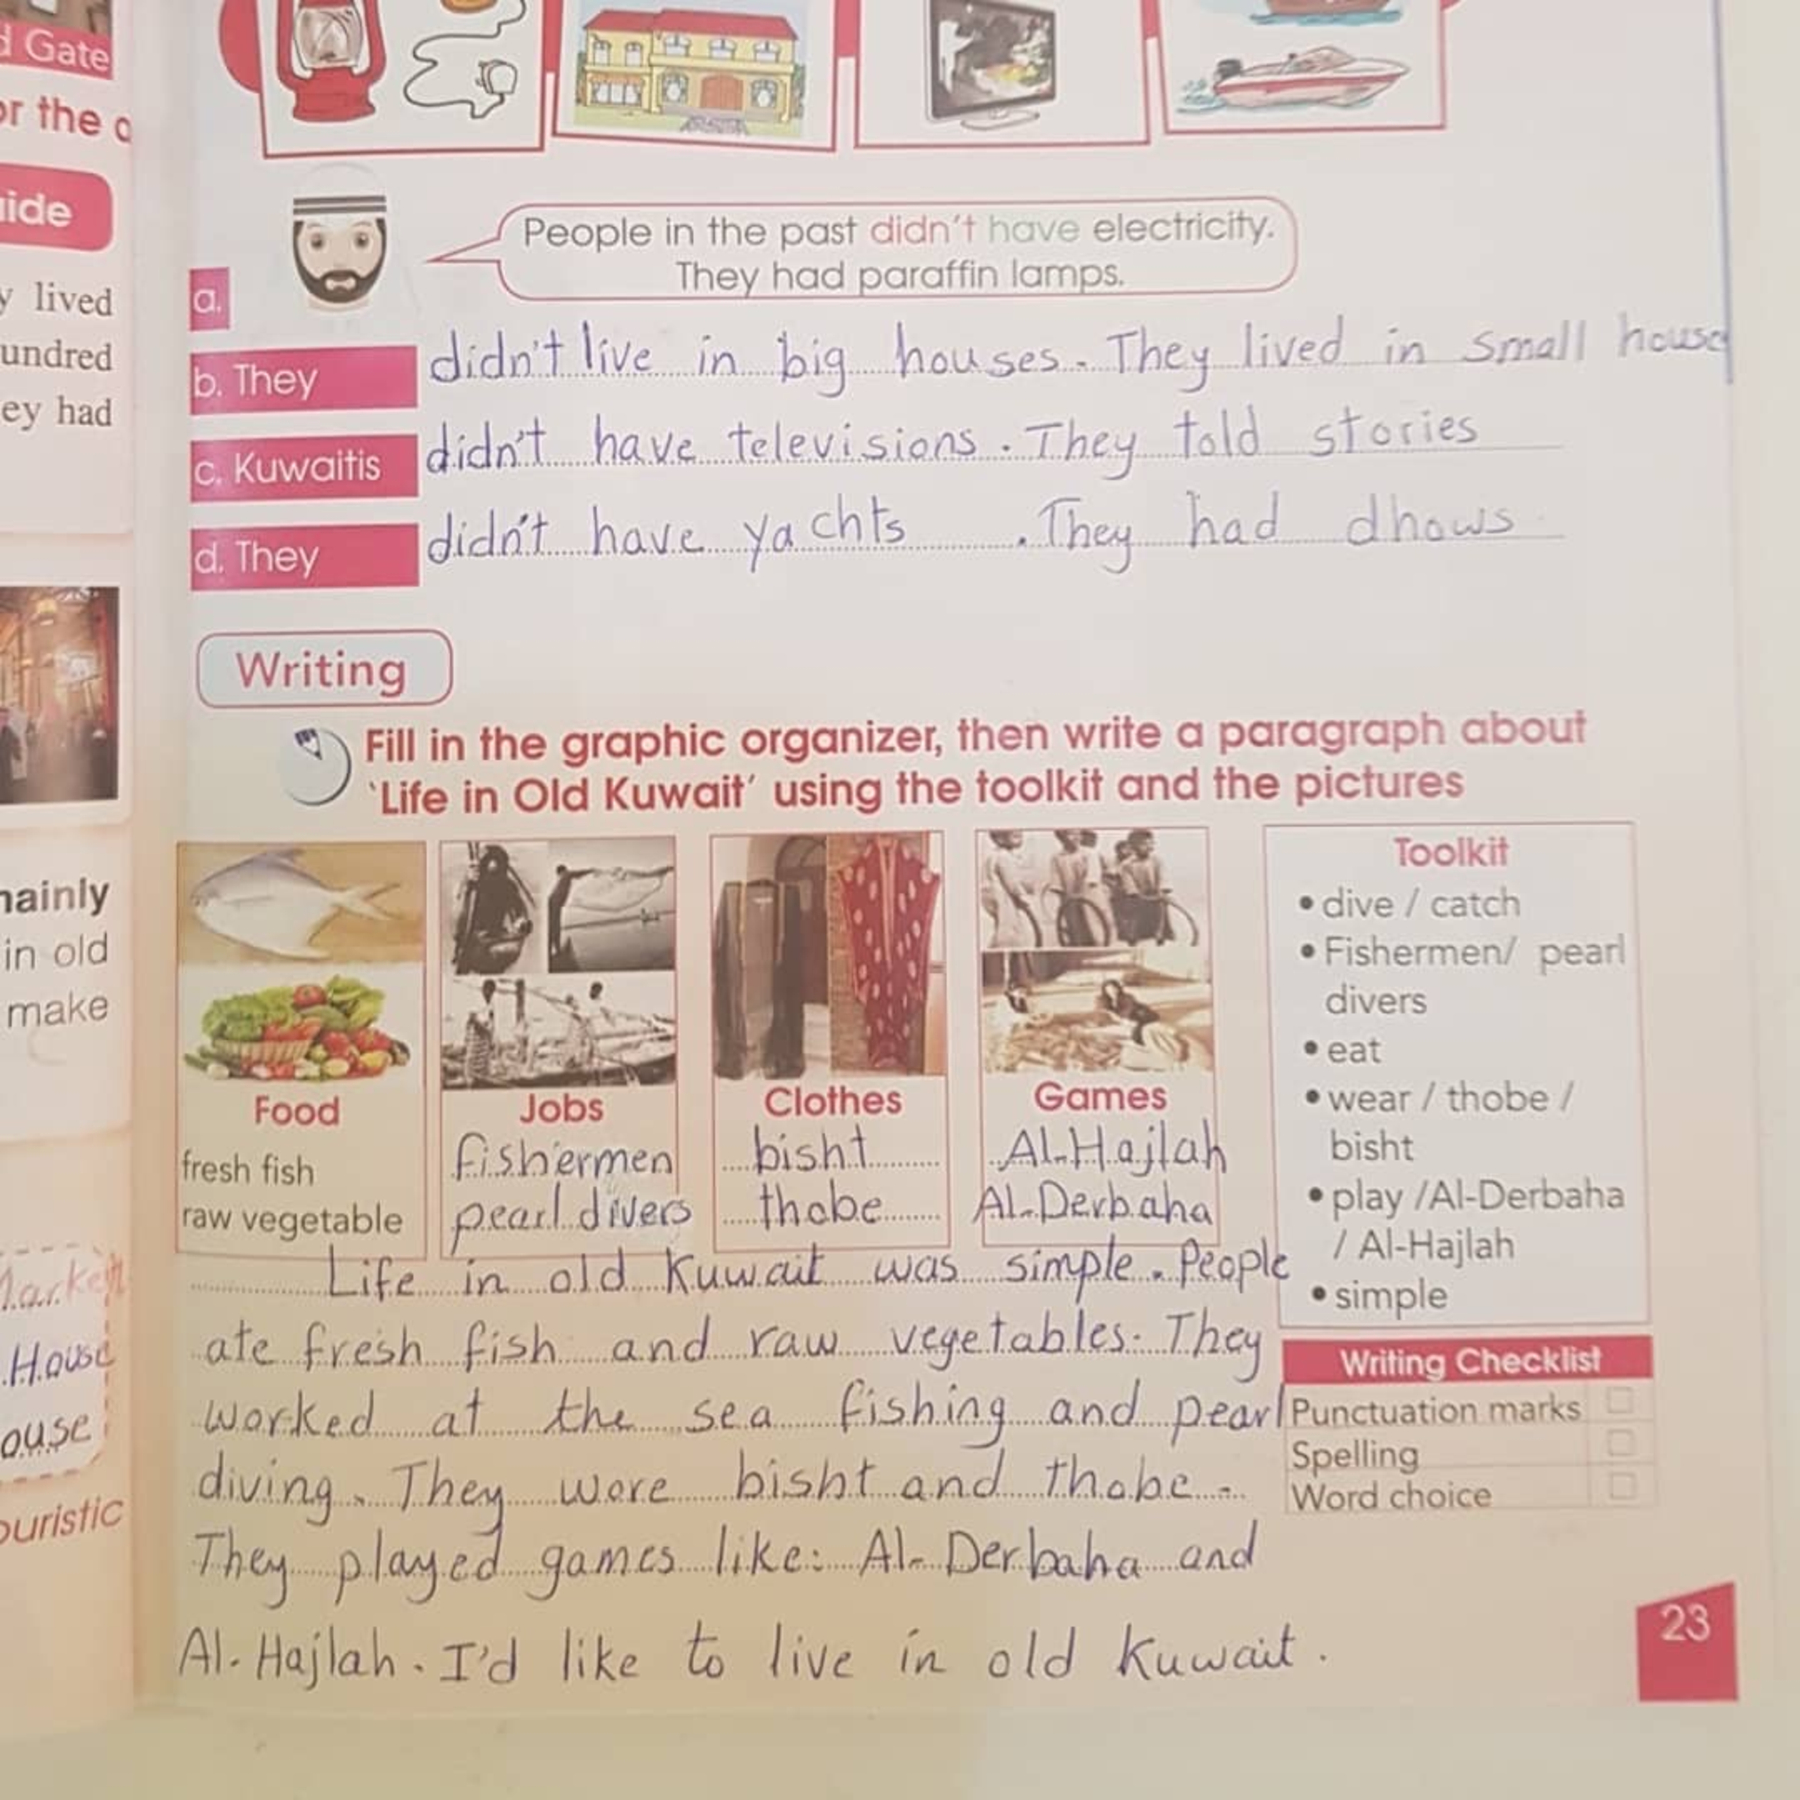 d Gate
or the
ide
lived
undred
ey had
mainly
in old
make
Market
House
ouse
ouristic
People in the past didn't have electricity.
They had paraffin lamps.
a.
b. They didn't live in big houses. They lived in small house
c. Kuwaitis didn't have televisions. They told stories
d. They didn't have yachts. They had dhows
Writing
Fill in the graphic organizer, then write a paragraph about
'Life in Old Kuwait' using the toolkit and the pictures
Food
fresh fish
raw vegetable
Jobs
fishermen
pearl divers
Clothes
bisht
thobe
Games
Al-Hajlah
Al-Derbaha
Toolkit
• dive / catch
• Fishermen/ pearl
divers
• eat
• wear / thobe /
bisht
• play /Al-Derbaha
/ Al-Hajlah
• simple
Life in old Kuwait was simple. People
ate fresh fish and raw vegetables. They
worked at the sea fishing and pearl
diving. They wore bisht and thobe.
They played games like: Al-Derbaha and
Al-Hajlah. I'd like to live in old Kuwait.
Writing Checklist
Punctuation marks
Spelling
Word choice
23